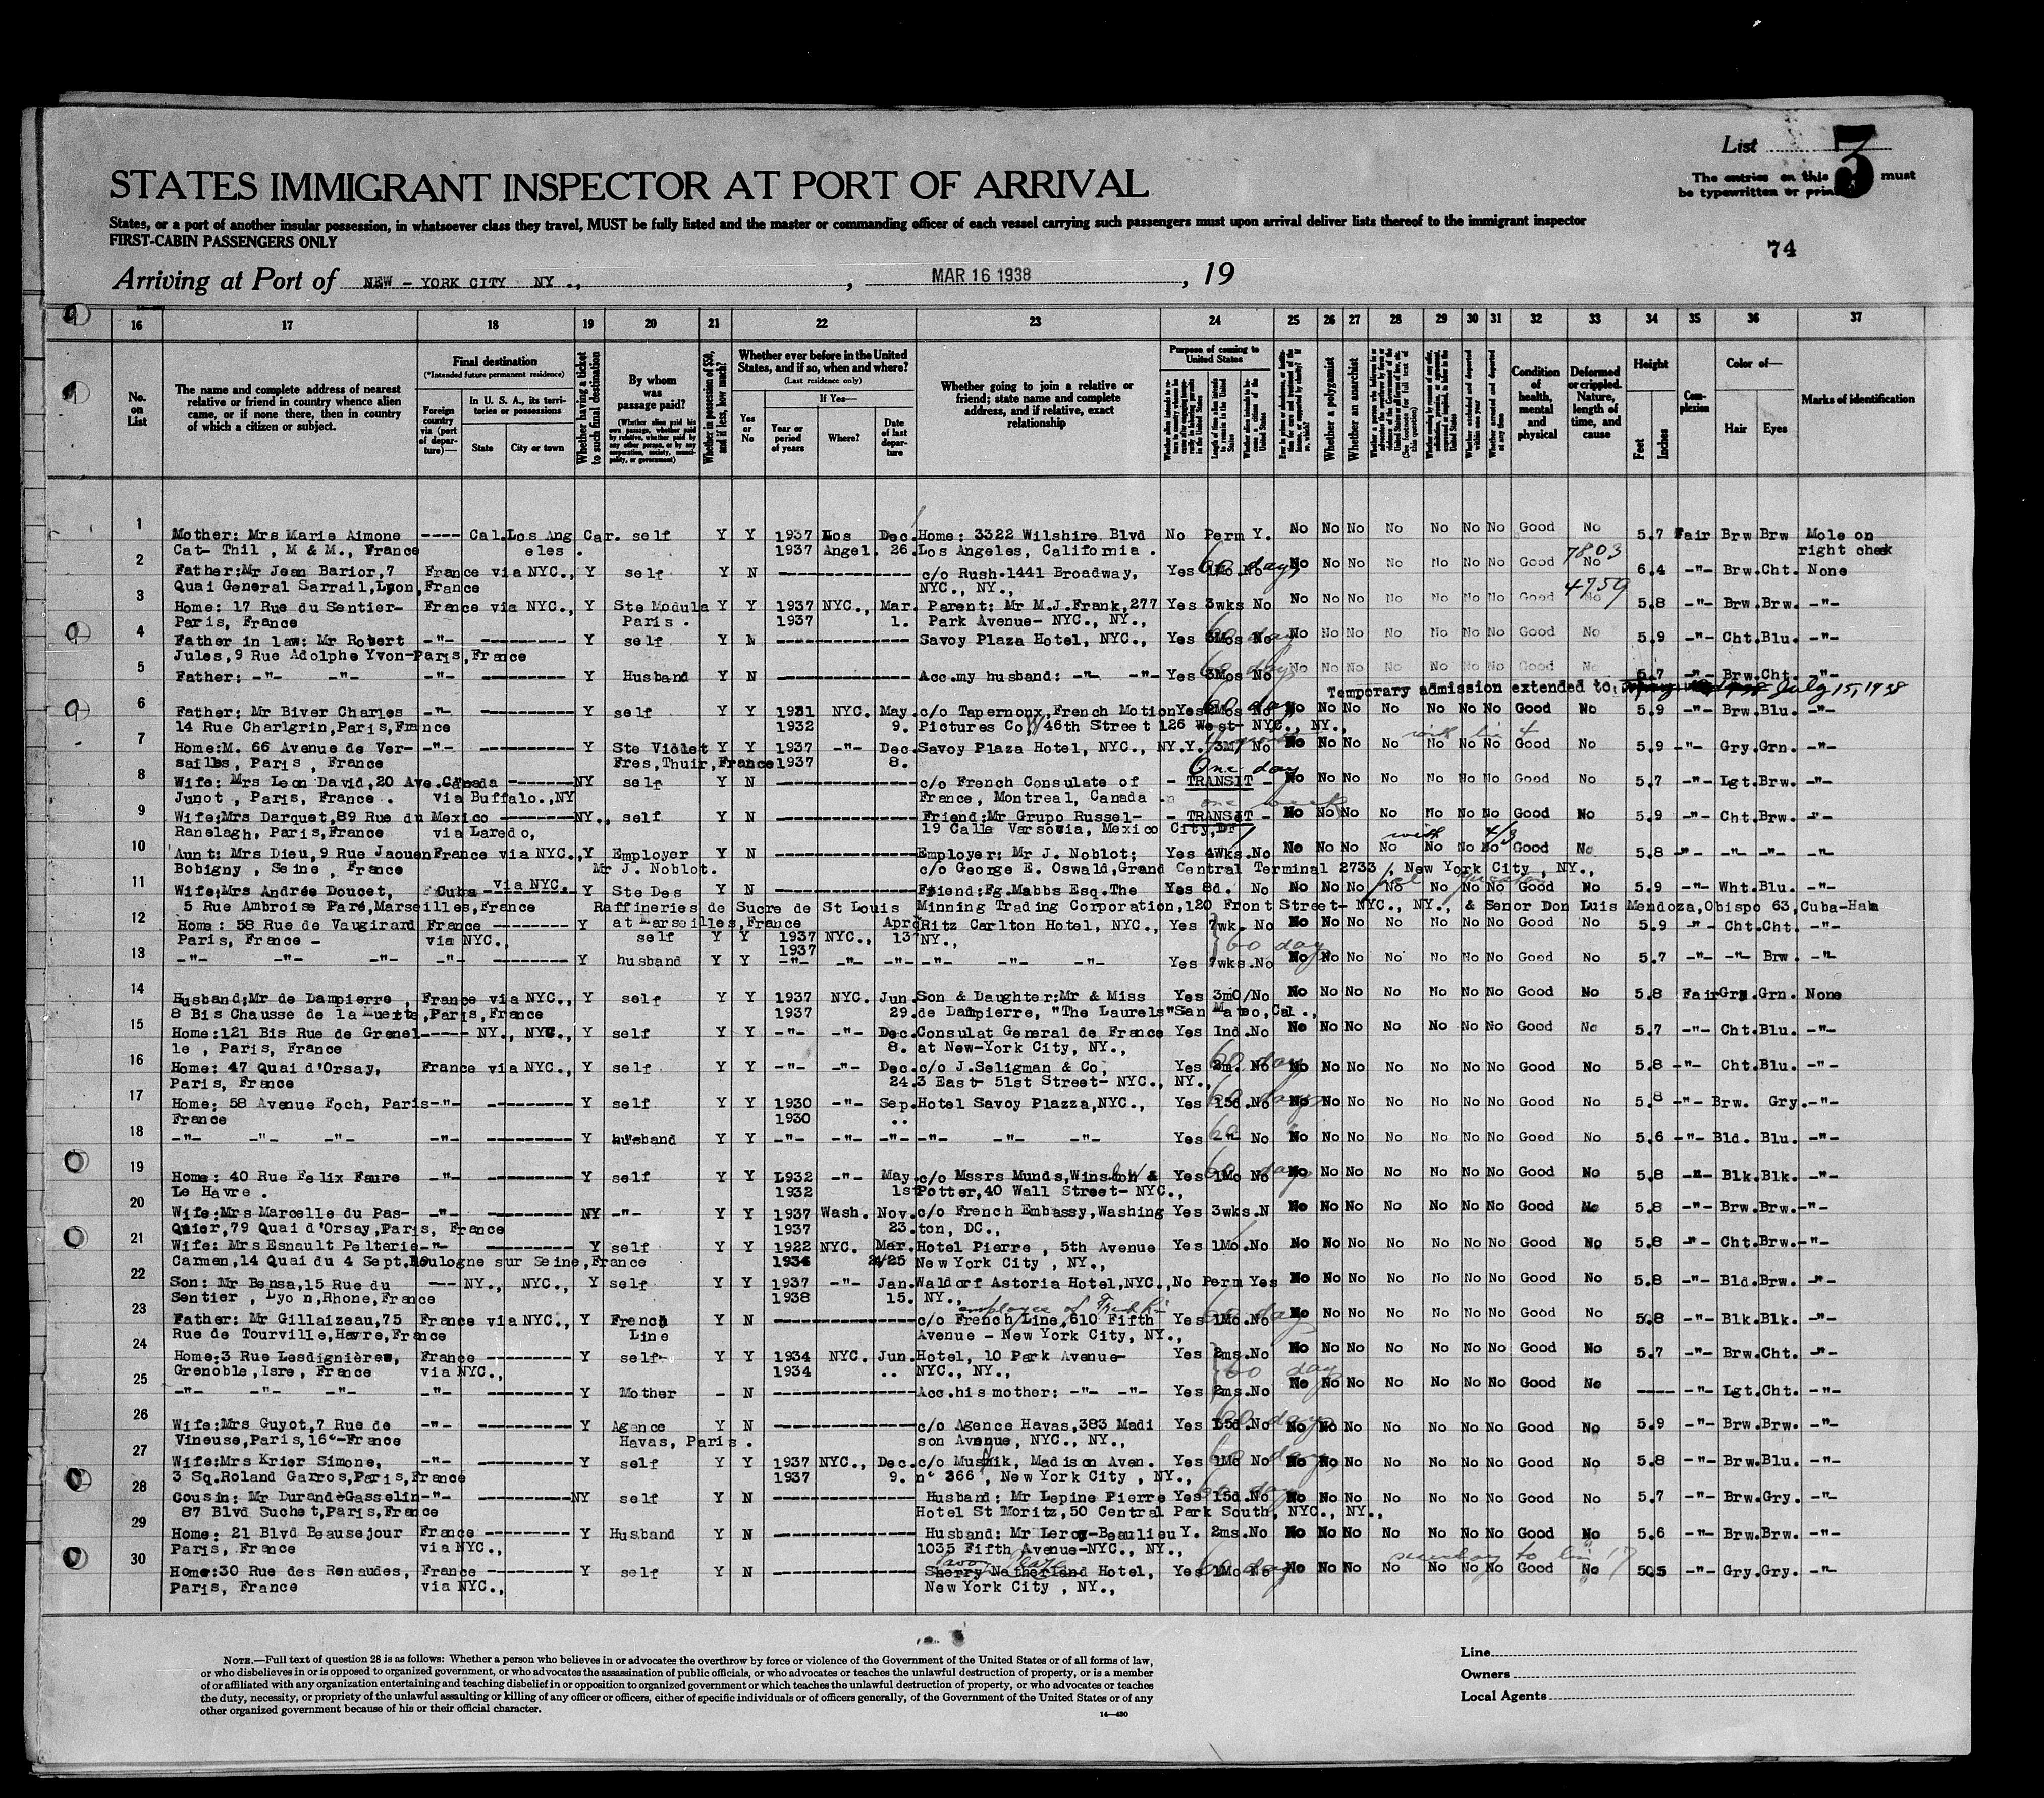 List 3
The entries on this must
be typewritten or prin
STATES IMMIGRANT INSPECTOR AT PORT OF ARRIVAL
States, or a port of another insular possession, in whatsoever class they travel, MUST be fully listed and the master or commanding officer of each vessel carrying such passengers must upon arrival deliver lists thereof to the immigrant inspector
FIRST-CABIN PASSENGERS ONLY
74
Arriving at Port of NEW - YORK CITY NY ., , MAR 16 1938 , 19
16 17 18 19 20 21 22 23 24 25 26 27 28 29 30 31 32 33 34 35 36 37
No. on List
The name and complete address of nearest relative or friend in country whence alien came, or if none there, then in country of which a citizen or subject.
Final destination
(*Intended future permanent residence)
Foreign country via (port of departure)—
In U. S. A., its territories or possessions
State
City or town
Whether having a ticket to such final destination
By whom was passage paid?
(Whether alien paid his own passage, whether paid by relative, whether paid by any other person, or by any corporation, society, municipality, or government)
Whether in possession of $50, and if less, how much?
Whether ever before in the United States, and if so, when and where?
(Last residence only)
Yes or No
If Yes—
Year or period of years
Where?
Date of last departure
Whether going to join a relative or friend; state name and complete address, and if relative, exact relationship
Purpose of coming to United States
Whether a polygamist
Whether an anarchist
Condition of health, mental and physical
Deformed or crippled. Nature, length of time, and cause
Height
Feet
Inches
Complexion
Color of—
Hair
Eyes
Marks of identification
1 Mother: Mrs Marie Aimone ---- Cal. Los Ang Car. self Y Y 1937 Los Dec. Home: 3322 Wilshire Blvd No Perm Y. No No No No No No No Good No 5.7 Fair Brw Brw Mole on
Cat- Thil , M & M., France eles . 1937 Angel. 26. Los Angeles, California . right cheek
2 Father:Mr Jean Barior,7 France via NYC., Y self Y N c/o Rush.1441 Broadway, Yes 1Mo No 60 days No No No No No No No Good 7803 No 6.4 -"- Brw. Cht. None
Quai General Sarrail,Lyon,France NYC., NY.,
3 Home: 17 Rue du Sentier- France via NYC., Y Ste Modula Y Y 1937 NYC., Mar. Parent: Mr M.J.Frank,277 Yes 3wks No No No No No No No No Good 4759 No 5.8 -"- Brw. Brw. -"-
Paris, France Paris . 1937 1. Park Avenue- NYC., NY.,
4 Father in law: Mr Robert -"- Y self Y N Savoy Plaza Hotel, NYC., Yes 3Mos No No No No No No No No Good No 5.9 -"- Cht. Blu. -"-
Jules,9 Rue Adolphe Yvon-Paris,France
5 Father: -"- -"- -"- Y Husband Y N Acc.my husband: -"- -"- Yes 3Mos No 60 days No No No No No No No Good No 5.7 -"- Brw. Cht. -"-
Temporary admission extended to: July 15, 1938
6 Father: Mr Biver Charles -"- Y self Y Y 1931 NYC. May. c/o Tapernonx,French Motion Yes No 60 days No No No No No No No Good No 5.9 -"- Brw. Blu. -"-
14 Rue Charlgrin,Paris,France 1932 9. Pictures Co, W 46th Street 126 West- NYC., NY.,
7 Home:M. 66 Avenue de Ver- -"- Y Ste Violet Y Y 1937 -"- Dec. Savoy Plaza Hotel, NYC., NY. Y. 3M No No No No No No No No Good No 5.9 -"- Gry. Grn. -"-
sailles, Paris , France Fres,Thuir,France 1937 8.
8 Wife: Mrs Leon David,20 Ave. Canada NY self Y N c/o French Consulate of - TRANSIT - One day No No No No No No No Good No 5.7 -"- Lgt. Brw. -"-
Junot , Paris, France . via Buffalo.,NY France, Montreal, Canada
9 Wife:Mrs Darquet,89 Rue du Mexico NY., self Y N Friend:Mr Grupo Russel- one week - TRANSIT - No No No No No No No Good No 5.9 -"- Cht. Brw. -"-
Ranelagh, Paris,France via Laredo, 19 Calle Varsovia, Mexico City,DF
10 Aunt: Mrs Dieu,9 Rue Jaouen France via NYC., Y Employer Y N Employer: Mr J. Noblot; Yes 4Wks. No No No No No No No No Good No 5.8 -"- -"- -"- -"-
Bobigny , Seine , France Mr J. Noblot. c/o George E. Oswald,Grand Central Terminal 2733 , New York City , NY.,
11 Wife:Mrs Andrée Doucet, Cuba via NYC. Y Ste Des Y N Friend:Fg.Mabbs Esq.The Yes 8d. No No No No No No No No Good No 5.9 -"- Wht. Blu. -"-
5 Rue Ambroise Paré,Marseilles,France Raffineries de Sucre de St Louis Minning Trading Corporation,120 Front Street- NYC., NY., & Senor Don Luis Mendoza,Obispo 63,Cuba-Haba
12 Home: 58 Rue de Vaugirard France Y at Marseilles,France Apr. Ritz Carlton Hotel, NYC., Yes 7wk. No No No No No No No No Good No 5.9 -"- Cht. Cht. -"-
Paris, France - via NYC., self Y Y 1937 NYC., 13 NY.,
1937 60 days
13 -"- -"- -"- -"- Y husband Y Y -"- -"- -"- -"- -"- -"- Yes 7wks. No No No No No No No No Good No 5.7 -"- -"- Brw . -"-
14 Husband:Mr de Dampierre , France via NYC., Y self Y Y 1937 NYC. Jun. Son & Daughter:Mr & Miss Yes 3mO/No No No No No No No No Good No 5.8 Fair Grn. None
8 Bis Chausse de la Muette,Paris,France 1937 29. de Dampierre, "The Laurels"San Mateo,Cal .,
15 Home:121 Bis Rue de Grenel ----- NY., NYC., Y self Y Y -"- -"- Dec. Consulat General de France Yes Ind. No No No No No No No No Good No 5.7 -"- Cht. Blu. -"-
le , Paris, France 8. at New-York City, NY.,
16 Home: 47 Quai d'Orsay, France via NYC., Y self Y Y -"- -"- Dec. c/o J.Seligman & Co, Yes 2m. No 60 days No No No No No No No Good No 5.8 -"- Cht. Blu. -"-
Paris, France 24. 3 East- 51st Street- NYC., NY.,
17 Home: 58 Avenue Foch, Paris -"- Y self Y Y 1930 -"- Sep. Hotel Savoy Plazza,NYC., Yes 15d. No 60 days No No No No No No No Good No 5.8 -"- Brw. Gry. -"-
France 1930 ..
18 -"- -"- -"- -"- Y husband Y Y -"- -"- -"- -"- -"- -"- Yes -"- No No No No No No No No Good No 5.6 -"- Bld. Blu. -"-
19 Home: 40 Rue Felix Faure -"- Y self Y Y 1932 -"- May. c/o Mssrs Munds,Winslow & Yes 1Mo No 60 days No No No No No No No Good No 5.8 -"- Blk. Blk. -"-
Le Havre . 1932 1st Potter,40 Wall Street- NYC.,
20 Wife:Mrs Marcelle du Pas- -"- NY -"- Y Y 1937 Wash. Nov. c/o French Embassy,Washing Yes 3wks. N No No No No No No No Good No 5.8 -"- Brw. Brw. -"-
Quier,79 Quai d'Orsay,Paris, France 1937 23. ton, DC.,
21 Wife: Mrs Esnault Pelterie -"- Y self Y Y 1922 NYC. Mar. Hotel Pierre , 5th Avenue Yes 1Mo. No No No No No No No No Good No 5.8 -"- Cht. Brw. -"-
Carmen,14 Quai du 4 Sept.Boulogne sur Seine,France 1934 New York City , NY.,
22 Son: Mr Bensa,15 Rue du --- NY., NYC., Y self Y Y 1937 -"- Jan. Waldorf Astoria Hotel,NYC., No Perm Yes No No No No No No No Good No 5.8 -"- Bld. Brw. -"-
Sentier , Lyon,Rhone,France 1938 15. NY.,
employee of French
23 Father: Mr Gillaizeau,75 France via NYC., Y French Y N c/o French Line,610 Fifth Yes 1Mo. No 60 days No No No No No No No Good No 5.8 -"- Blk. Blk. -"-
Rue de Tourville,Havre,France Line Avenue - New York City, NY.,
24 Home:3 Rue Lesdignières, France Y self- Y Y 1934 NYC. Jun. Hotel, 10 Park Avenue- Yes 2ms. No No No No No No No No Good No 5.7 -"- Brw. Cht. -"-
Grenoble,Isre, France via NYC., 1934 .. NYC., NY., 60 days
25 -"- -"- -"- -"- Y Mother - N Acc.his mother: -"- -"- Yes 2ms. No No No No No No No No Good No ---- -"- Lgt. Cht. -"-
26 Wife:Mrs Guyot,7 Rue de -"- Y Agence Y N c/o Agence Havas,383 Madi Yes 15d. No 60 days No No No No No No No Good No 5.9 -"- Brw. Brw. -"-
Vineuse,Paris,16°-France Havas, Paris . son Avenue, NYC., NY.,
27 Wife:Mrs Krier Simone, -"- Y self Y Y 1937 NYC., Dec. c/o Musnik, Madison Aven. Yes 1Mo No 60 days No No No No No No No Good No 5.8 -"- Brw. Blu. -"-
3 Sq.Roland Garros,Paris,France 1937 9. n° 366 , New York City , NY.,
28 Cousin: Mr Durand-Gasselin -"- NY self Y N Husband: Mr Lepine Pierre Yes 15d. No 60 days No No No No No No No Good No 5.7 -"- Brw. Gry. -"-
87 Blvd Suchet,Paris,France Hotel St Moritz,50 Central Park South, NYC., NY.,
29 Home: 21 Blvd Beausejour France Y Husband Y N Husband: Mr Leroy-Beaulieu Y. 2ms. No No No No No No No No Good No 5.6 -"- Brw. Brw. -"-
Paris, France via NYC., 1035 Fifth Avenue-NYC., NY.,
Savoy Plaza
30 Home:30 Rue des Renaudes, France Y self Y N Sherry Netherland Hotel, Yes 1Mo No 60 days No No No No No No No Good No 5.5 -"- Gry. Gry. -"-
Paris, France via NYC., New York City , NY.,
NOTE.—Full text of question 28 is as follows: Whether a person who believes in or advocates the overthrow by force or violence of the Government of the United States or of all forms of law,
or who disbelieves in or is opposed to organized government, or who advocates the assassination of public officials, or who advocates or teaches the unlawful destruction of property, or is a member
of or affiliated with any organization entertaining and teaching disbelief in or opposition to organized government or which teaches the unlawful destruction of property, or who advocates or teaches
the duty, necessity, or propriety of the unlawful assaulting or killing of any officer or officers, either of specific individuals or of officers generally, of the Government of the United States or of any
other organized government because of his or their official character.
14—430
Line
Owners
Local Agents